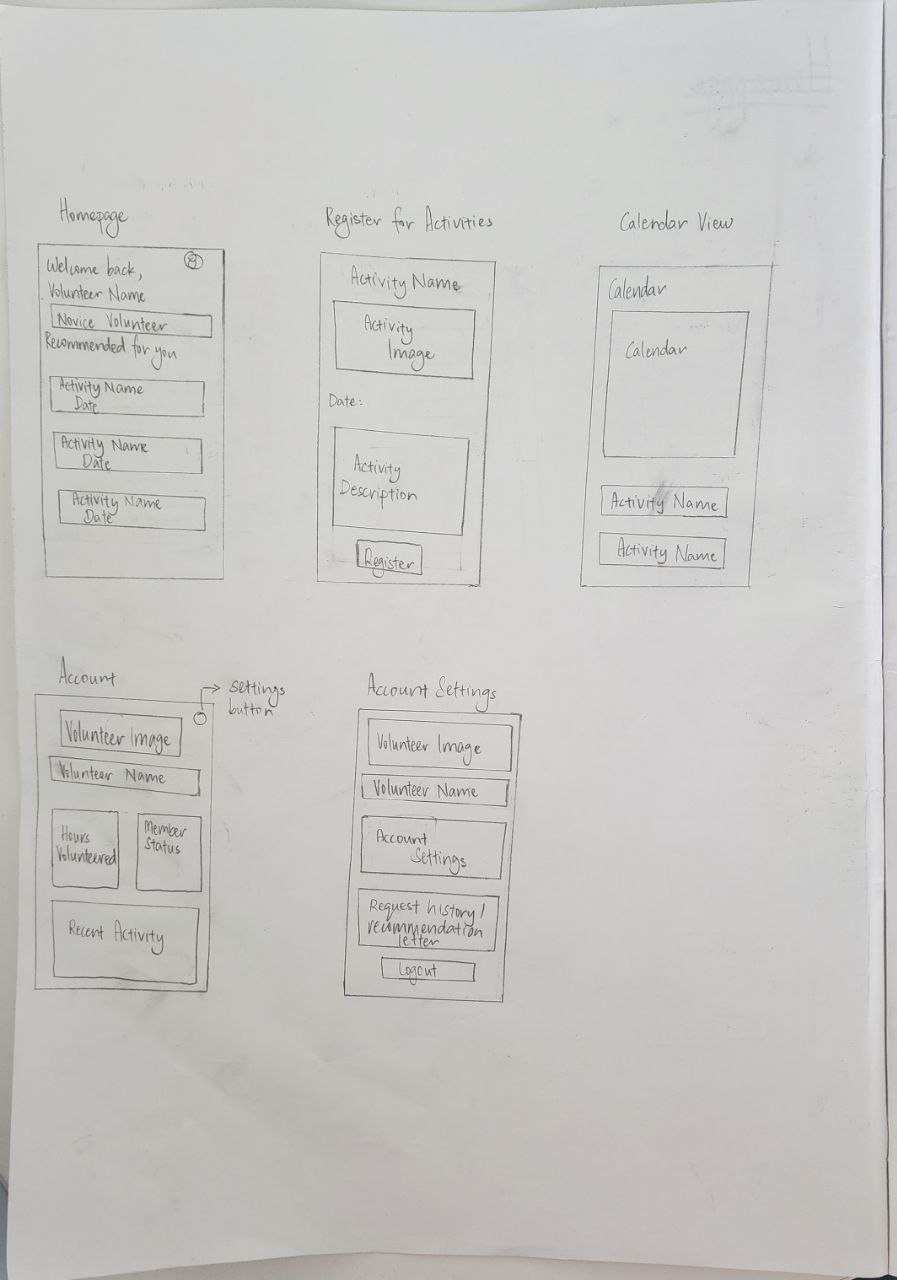 Homepage
Welcome back,
Volunteer Name
Novice Volunteer
Recommended for you
Activity Name
Date
Activity Name
Date
Activity Name
Date
Register for Activities
Activity Name
Activity
Image
Date:
Activity
Description
Register
Calendar View
Calendar
Calendar
Activity Name
Activity Name
Account
settings
button
Volunteer Image
Volunteer Name
Hours
Volunteered
Member
Status
Recent Activity
Account Settings
Volunteer Image
Volunteer Name
Account
Settings
Request history/
recommendation
letter
Logout
Homepage